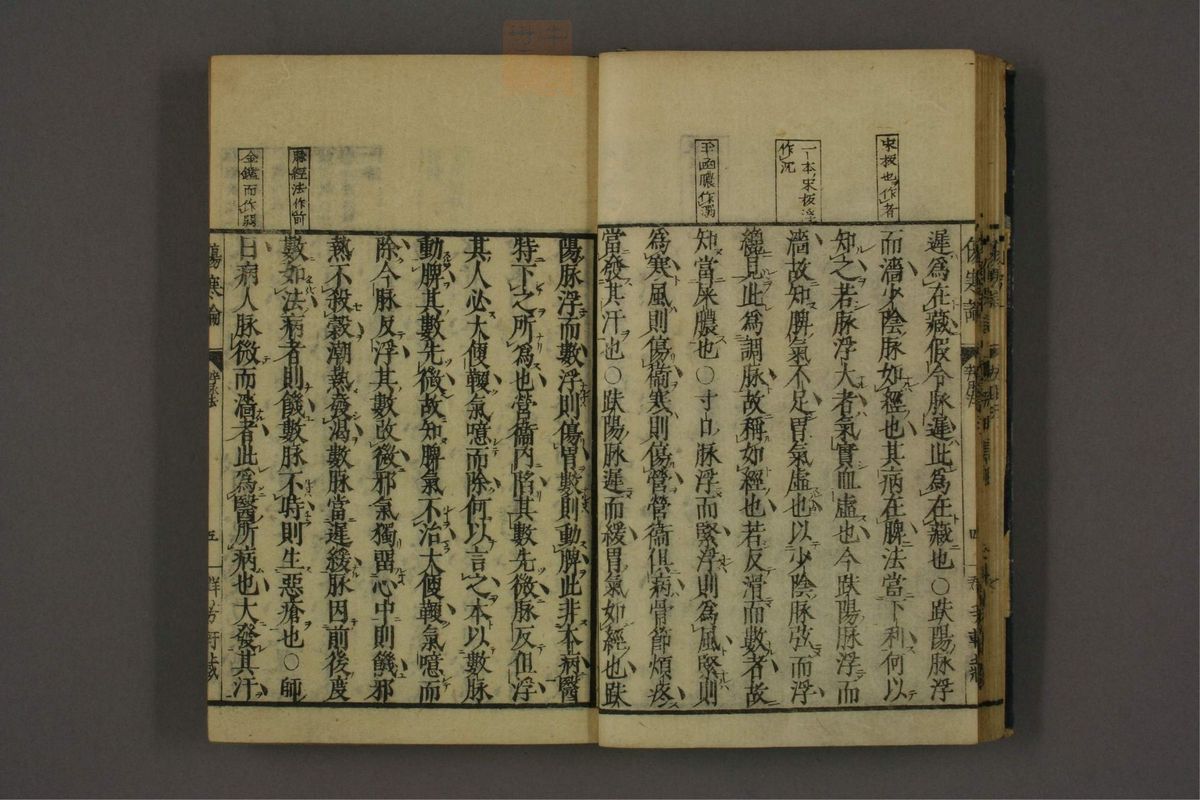 宋板也作者
一本宋板浮
作沉
玉函膿作溺
遲爲在藏假令脉遲此爲在藏也○趺陽脉浮
而濇少陰脉如經也其病在脾法當下利何以
知之若脉浮大者氣實血虛也今趺陽脉浮而
濇故知脾氣不足胃氣虛也以少陰脉弦而浮
纔見此爲調脉故稱如經也若反滑而數者故
知當屎膿也○寸口脉浮而緊浮則爲風緊則
爲寒風則傷衞寒則傷營營衞俱病骨節煩疼
當發其汗也○趺陽脉遲而緩胃氣如經也趺
脉經法作前
金鑑而作弱
陽脉浮而數浮則傷胃數則動脾此非本病醫
特下之所爲也營衞内陷其數先微脉反但浮
其人必大便鞕氣噫而除何以言之本以數脉
動脾其數先微故知脾氣不治大便鞕氣噫而
除今脉反浮其數改微邪氣獨留心中則饑邪
熱不殺穀潮熱發渴數脉當遲緩脉因前後度
數如法病者則饑數脉不時則生惡瘡也○師
曰病人脉微而濇者此爲醫所病也大發其汗
傷寒論
五